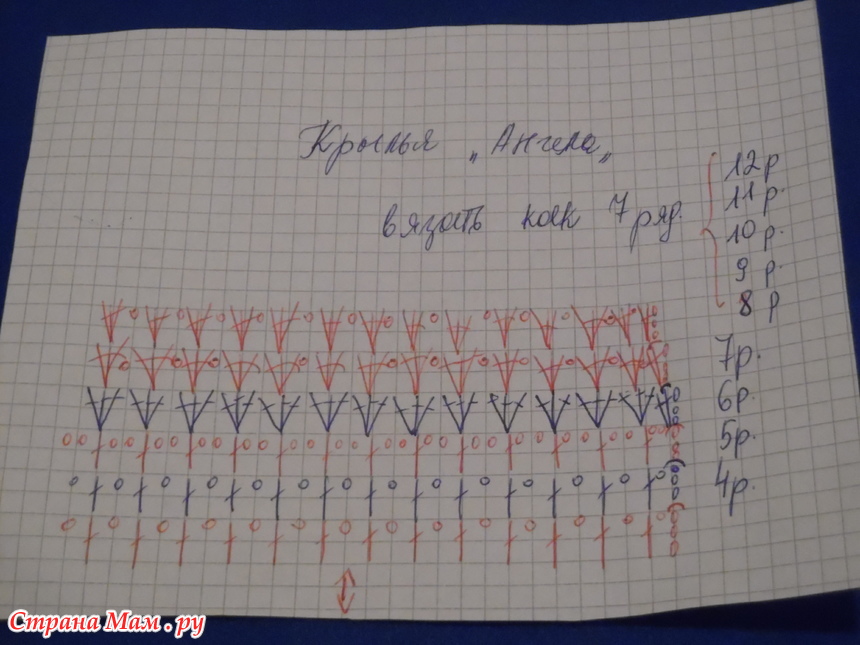 Крылья "Ангела"
вязать как 7 ряд.
12 р
11 р.
10 р.
9 р.
8 р
7р.
6р.
5р.
4р.
Страна Мам.ру